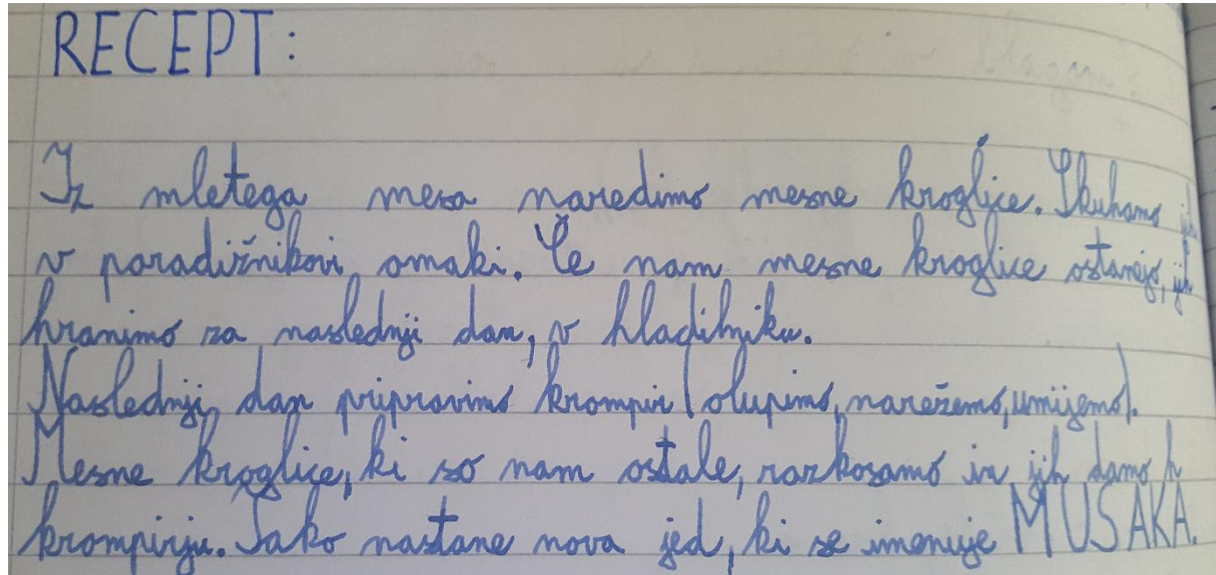 RECEPT:
Iz mletega mesa naredimo mesne kroglice. Skuhamo jih
v paradižnikovi omaki. Če nam mesne kroglice ostanejo, jih
hranimo za naslednji dan, v hladilniku.
Naslednji dan pripravimo krompir (olupimo, narežemo, umijemo).
Mesne kroglice, ki so nam ostale, razkosamo in jih damo h
krompirju. Tako nastane nova jed, ki se imenuje MUSAKA.